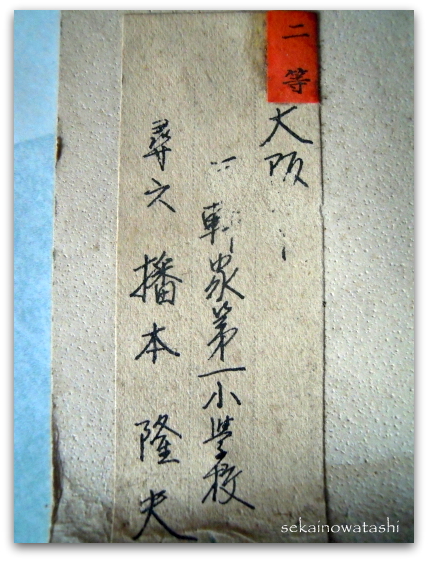 二等
大阪
軒家第一小學校
尋六 播本隆史
sekainowatashi